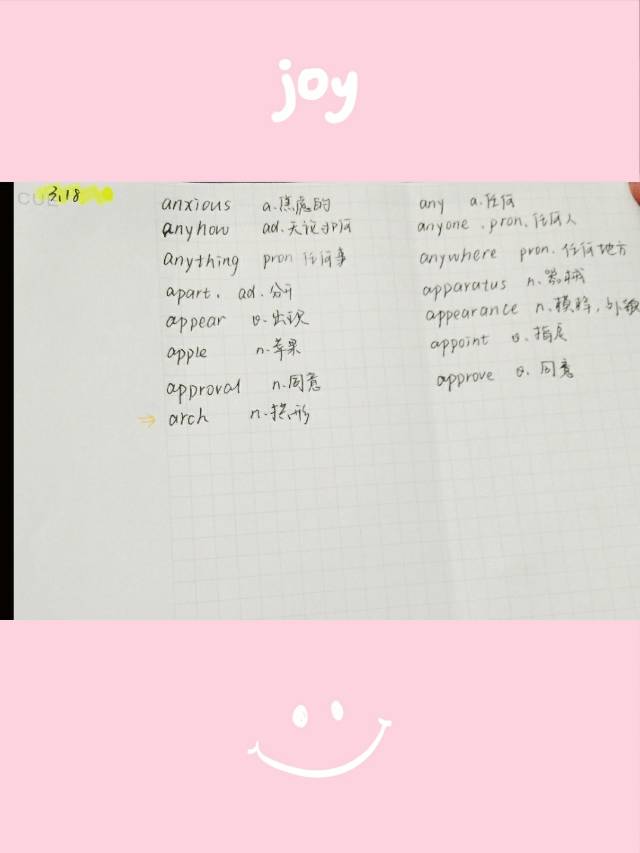 joy
CUE 3.18
anxious a.焦虑的 any a.任何
anyhow ad.无论如何 anyone .pron.任何人
anything pron 任何事 anywhere pron.任何地方
apart. ad.分开 apparatus n.器械
appear v.出现 appearance n.模样,外貌
apple n.苹果 appoint v.指定
approval n.同意 approve v.同意
⇒ arch n.拱形